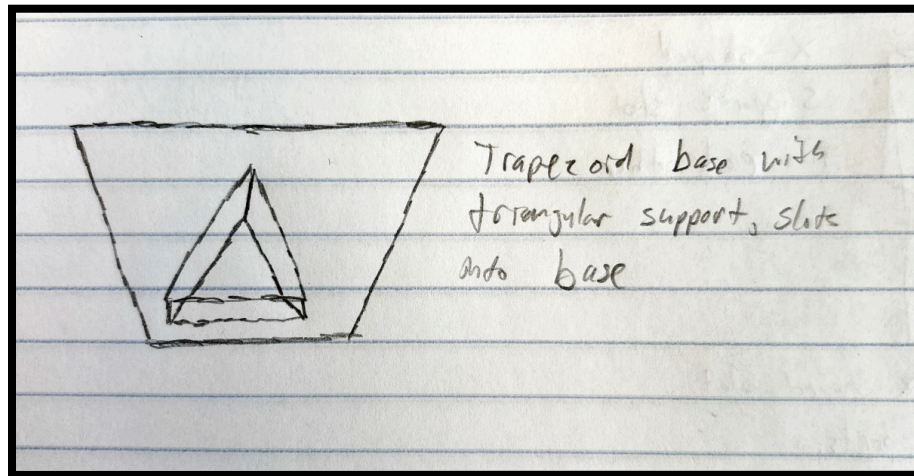 Trapezoid base with
triangular support, slots
onto base